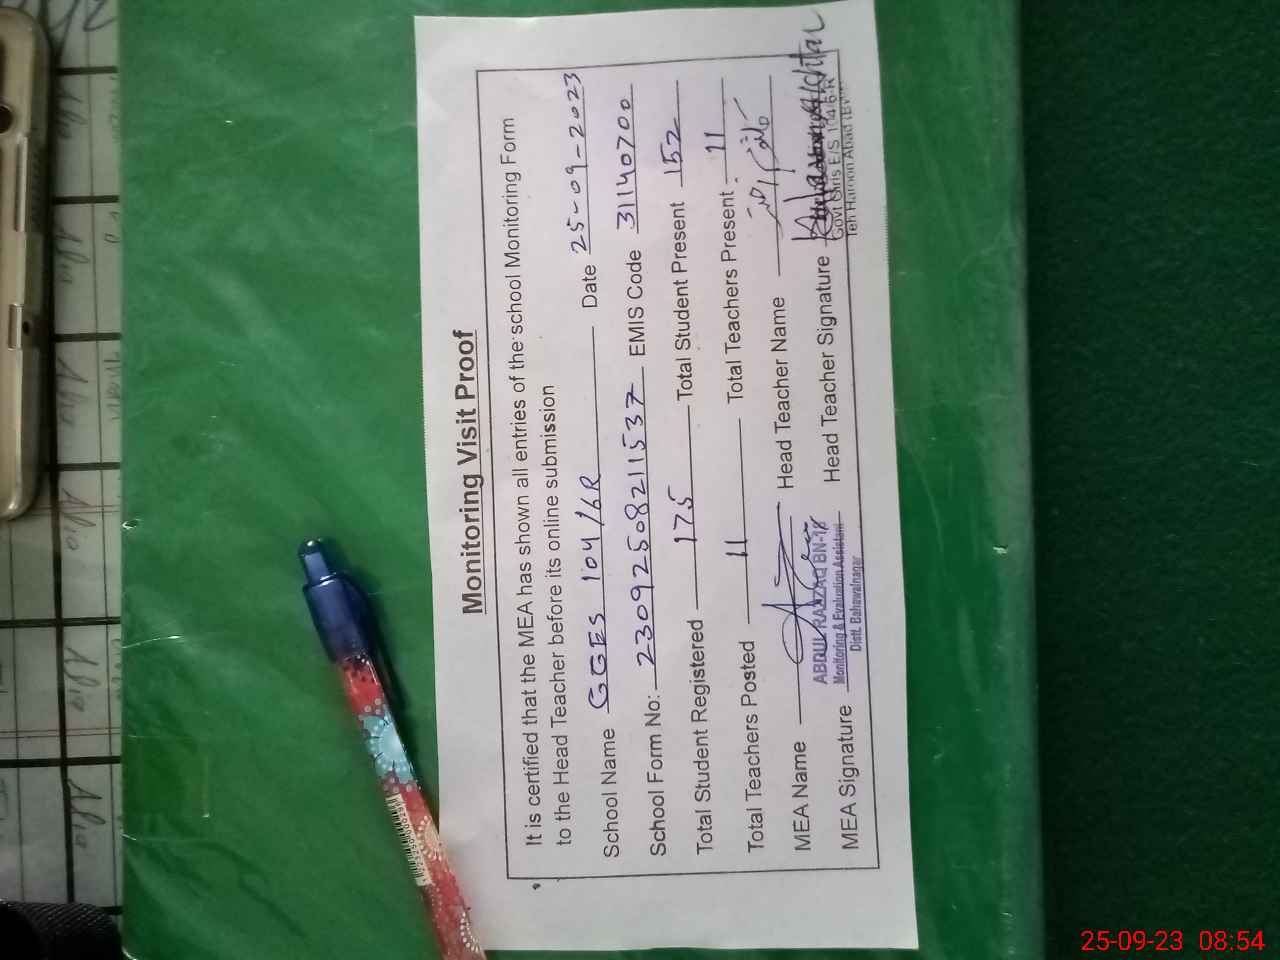 Monitoring Visit Proof
It is certified that the MEA has shown all entries of the school Monitoring Form
to the Head Teacher before its online submission
School Name GGES 104/6R Date 25-09-2023
School Form No: 23092508211537 EMIS Code 31140700
Total Student Registered 175 Total Student Present 152
Total Teachers Posted 11 Total Teachers Present: 11
MEA Name Head Teacher Name
ABDUL RAZZAQ BN-18
Monitoring & Evaluation Assistant
Distt. Bahawalnagar
MEA Signature Head Teacher Signature
Govt Girls E/S 104/6-R
Teh Haroon Abad
25-09-23 08:54